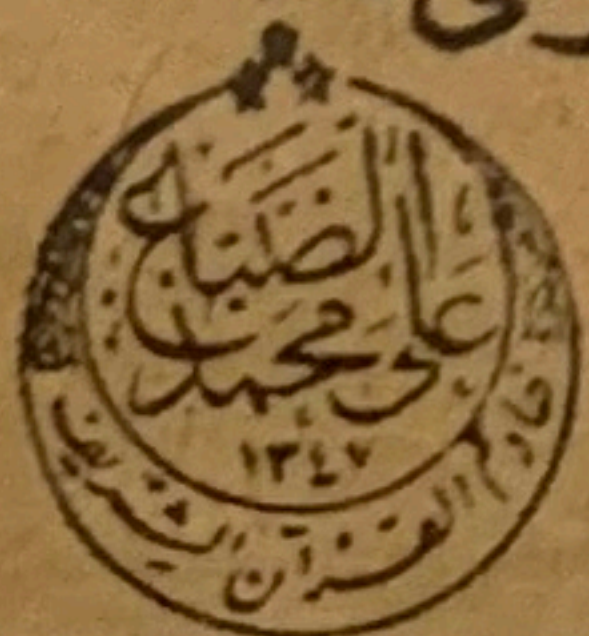 على محمد الضباع
١٣٤٧
خادم القرآن الشريف